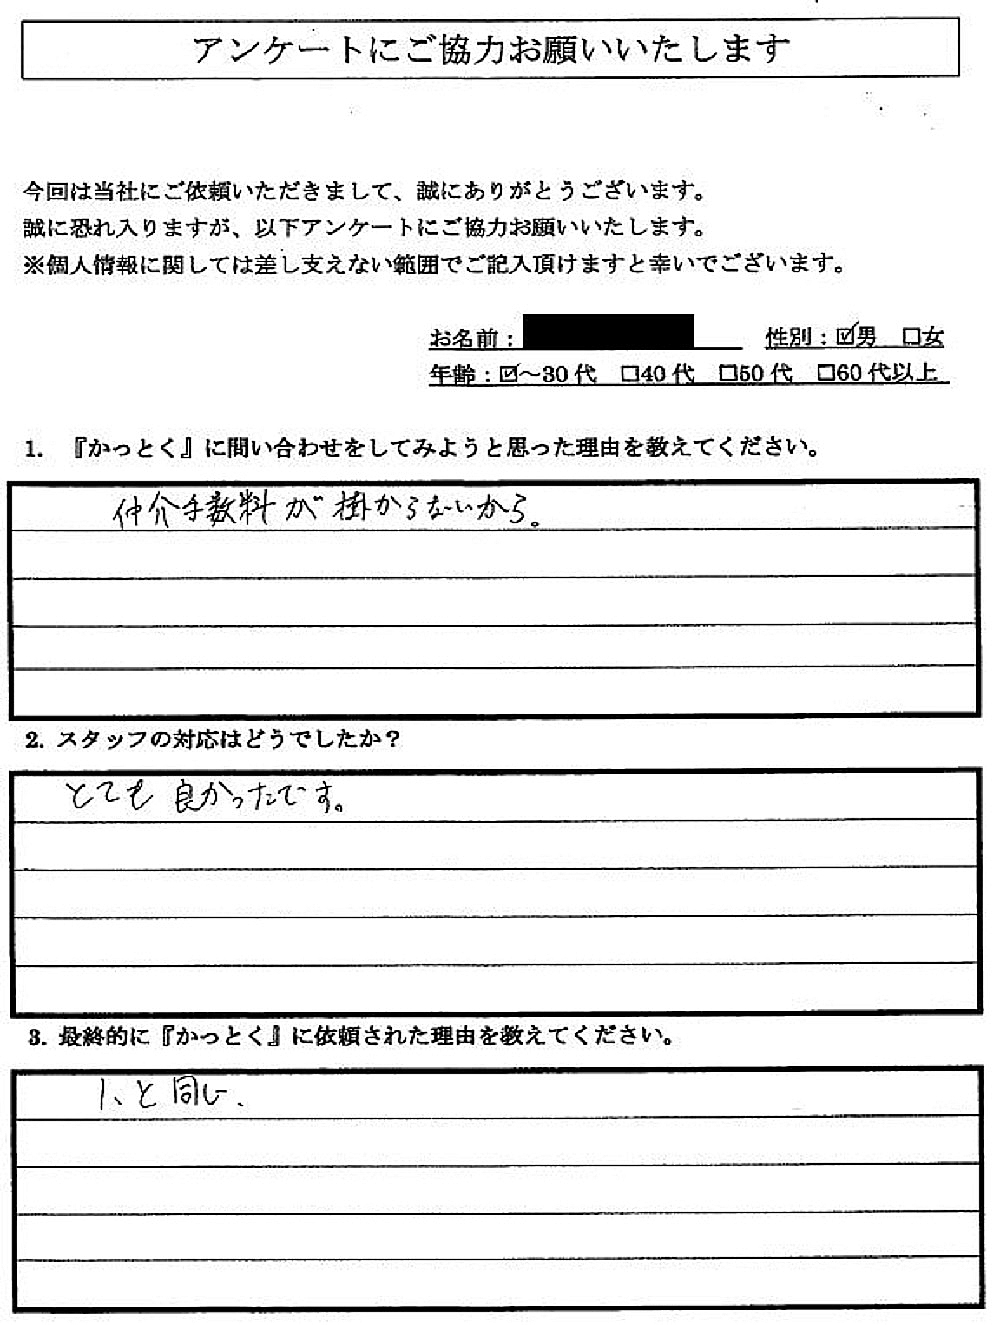 アンケートにご協力お願いいたします
今回は当社にご依頼いただきまして、誠にありがとうございます。
誠に恐れ入りますが、以下アンケートにご協力お願いいたします。
※個人情報に関しては差し支えない範囲でご記入頂けますと幸いでございます。
お名前： 性別：☑男 □女
年齢：☑～30代 □40代 □50代 □60代以上
1. 『かっとく』に問い合わせをしてみようと思った理由を教えてください。
仲介手数料が掛からないから。
2. スタッフの対応はどうでしたか？
とても良かったです。
3. 最終的に『かっとく』に依頼された理由を教えてください。
1、と同じ、